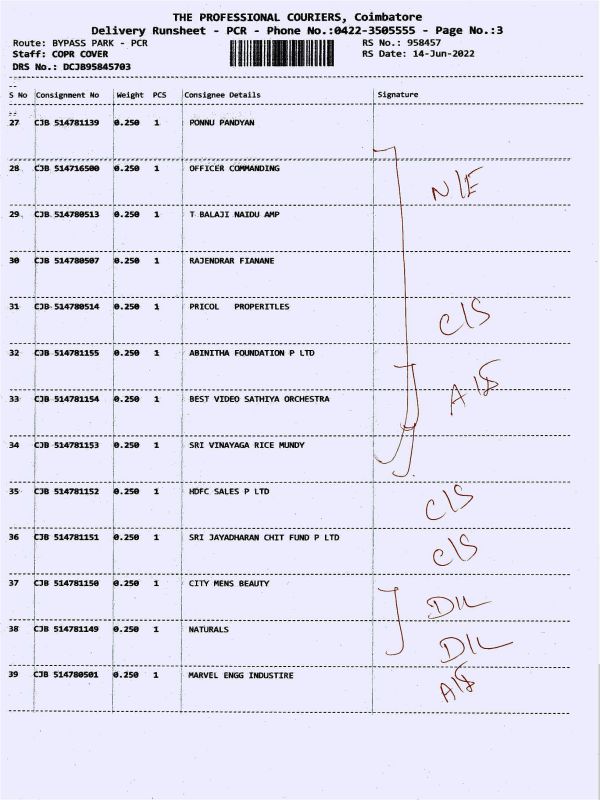 THE PROFESSIONAL COURIERS, Coimbatore
Delivery Runsheet - PCR - Phone No.:0422-3505555 - Page No.:3
Route: BYPASS PARK - PCR RS No.: 958457
Staff: COPR COVER RS Date: 14-Jun-2022
DRS No.: DCJB95845703
S No Consignment No Weight PCS Consignee Details Signature
27 CJB 514781139 0.250 1 PONNU PANDYAN
28 CJB 514716500 0.250 1 OFFICER COMMANDING N/E
29 CJB 514780513 0.250 1 T BALAJI NAIDU AMP
30 CJB 514780507 0.250 1 RAJENDRAR FIANANE
31 CJB 514780514 0.250 1 PRICOL PROPERITLES C/S
32 CJB 514781155 0.250 1 ABINITHA FOUNDATION P LTD
33 CJB 514781154 0.250 1 BEST VIDEO SATHIYA ORCHESTRA
34 CJB 514781153 0.250 1 SRI VINAYAGA RICE MUNDY
35 CJB 514781152 0.250 1 HDFC SALES P LTD C/S
36 CJB 514781151 0.250 1 SRI JAYADHARAN CHIT FUND P LTD C/S
37 CJB 514781150 0.250 1 CITY MENS BEAUTY D/L
38 CJB 514781149 0.250 1 NATURALS D/L
39 CJB 514780501 0.250 1 MARVEL ENGG INDUSTIRE